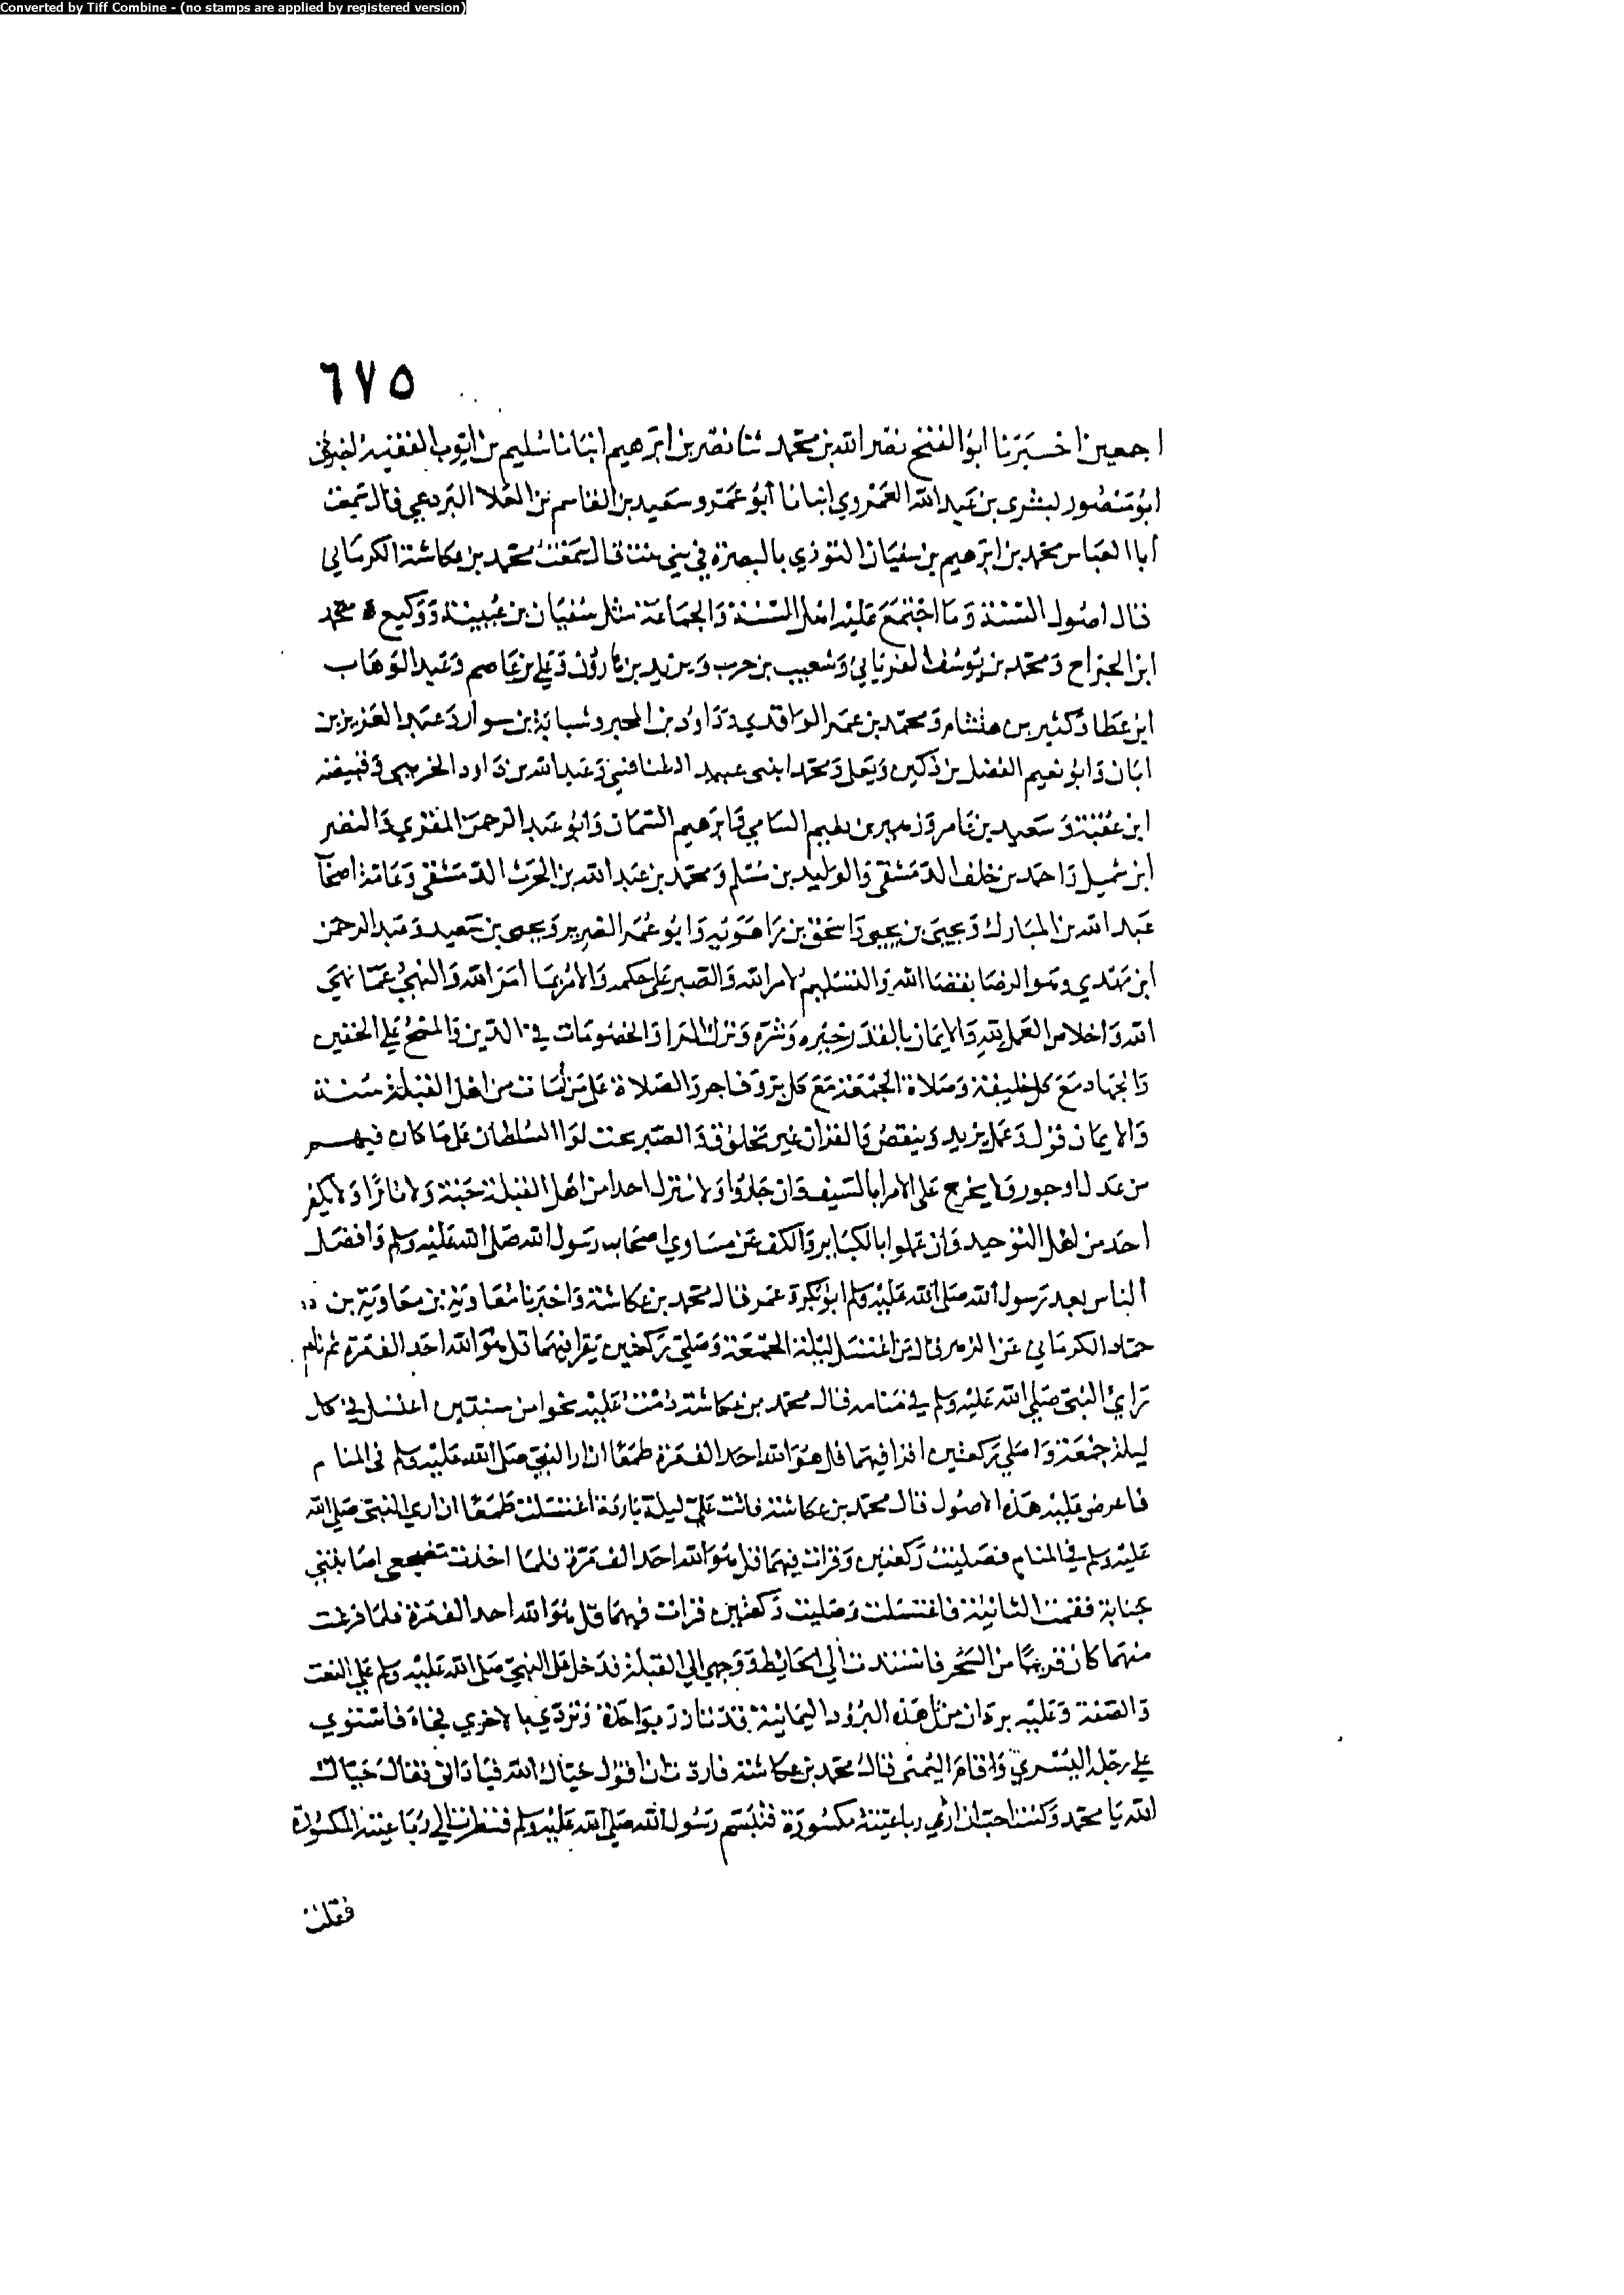 Converted by Tiff Combine - (no stamps are applied by registered version)
٦٧٥
اجمعين اخبرنا ابو الفتح نصر الله بن محمد ثنا نصر بن ابرهيم انبانا سليم بن ايوب الفقيه
ابو منصور بن عبد الله العمروي انبانا ابو عمرو سعيد بن القاسم بن العلا البردعي قال سمعت
ابا العباس محمد بن ابرهيم بن سفيان التوذي بالبصرة في بني قال سمعت محمد بن عكاشة الكرماني
قال اصول السنة وما اجتمع عليه اهل السنة والجماعة مثل سفيان بن عيينة ووكيع محمد
ابن الجراح ومحمد بن يوسف الفريابي وشعيب بن حرب ويزيد بن هارون وعلي بن عاصم وعبد الوهاب
ابن عطا وكثير بن هشام ومحمد بن عمر الواقدي وداود بن المحبر وشبابة بن سوار وعبد العزيز بن
ابان وابو نعيم الفضل بن دكين ويعلى ومحمد ابنى عبيد الطنافسي وعبد الله بن داود الخريبي وقبيصة
ابن عقبة وسعيد بن عامر وزهير بن نعيم البابي وابرهيم السمان وابو عبد الرحمن المقري والنضر
ابن شميل واحمد بن خلف الدمشقى والوليد بن مسلم ومحمد بن عبد الله بن الحرث الدمشقى وعامة اصحاب
عبد الله بن المبارك ويحيى بن يحيى واسحق بن راهويه وابو عمر الضرير ويحيى بن سعيد وعبد الرحمن
ابن مهدي وهو الرضا بقضا الله والتسليم لامر الله والصبر على حكمه والامر بما امر الله والنهي عما نهى
الله واخلاص العمل لله والايمان بالقدر خيره وشره وترك المرا والخصومات في الدين والمسح علي الخفين
والجهاد مع كل خليفة وصلاة الجمعة مع كل بر وفاجر والصلاة على من مات من اهل القبلة سنة
والايمان قول وعمل يزيد وينقص والقران غير مخلوق والصبر تحت لوا السلطان على ما كان فيهم
من عدل او جور ولا يخرج على الامرا بالسيف وان جاروا ولا ننزل احدا من اهل القبلة جنة ولا نارا ولا يكفر
احد من اهل التوحيد وان عملوا بالكباير والكف عن مساوي اصحاب رسول الله صلى الله عليه وسلم وافضل
الناس بعد رسول الله صلى الله عليه وسلم ابو بكر وعمر قال محمد بن عكاشة واخبرنا معاوية بن معاوية بن
حماد الكرماني عن الزهري قال من اغتسل ليلة الجمعة وصلى ركعتين يقرا فيهما قل هو الله احد الف مرة ثم نام
راي النبي صلى الله عليه وسلم في منامه قال محمد بن عكاشة دمت عليه نحوا من سنتين اغتسل في كل
ليلة جمعة واصلي ركعتين اقرا فيهما قل هو الله احد الف مرة طمعا ان ارا النبي صلى الله عليه وسلم فى المنام
فاعرض عليه هذه الاصول قال محمد بن عكاشة فاتت علي ليلة باردة اغتسلت طمعا ان اري النبي صلى الله
عليه وسلم في المنام فصليت ركعتين وقرات فيهما قل هو الله احد الف مرة فلما اخذت مضجعى اصابتني
جنابة فقمت الثانية فاغتسلت وصليت ركعتين قرات فيهما قل هو الله احد الف مرة فلما فرغت
منهما كان قريبا من السحر فاستندت الي الحايط ووجهي الي القبلة فدخل على النبي صلى الله عليه وسلم علي النعت
والصفة وعليه بردان من مثل هذه البرود اليمانية قد تازر بواحدة وتردي بالاخري فجاء فاستوي
علي رجله اليسري واقام اليمنى قال محمد بن عكاشة فاردت ان اقول حياك الله فبادانى فقال حياك
الله يا محمد وكنت احب ان اري رباعيته مكسورة فتبسم رسول الله صلى الله عليه وسلم فنظرت الي رباعيته المكسورة
فقلت